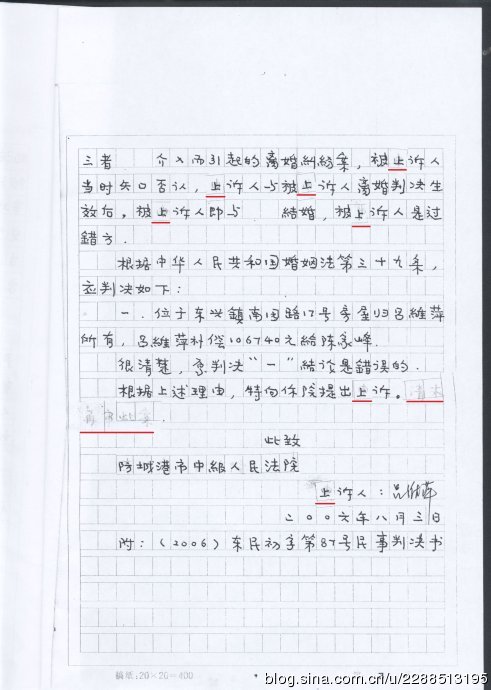 三者 介入而引起的离婚糾紛案，被上诉人
当时矢口否认，上诉人与被上诉人离婚判决生
效后。被上诉人即与 結婚，被上诉人是过
錯方．
根据中华人民共和国婚姻法第三十九条，
应判决如下：
一．位于东兴鎮南园路17号房屋归吕維萍
所有，吕維萍补偿106740元給陈家峰．
很清楚，原判决“一”結论是錯误的．
根据上述理由，特向你院提出上诉。
此致
防城港市中級人民法院
上诉人：吕維萍
二００六年八月三日
附：（2006）东民初字第87号民事判决书
稿簞:20×20=400
blog.sina.com.cn/u/2288513195